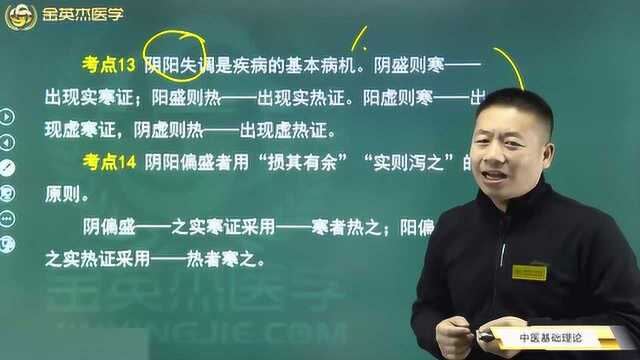 金英杰医学
考点13 阴阳失调是疾病的基本病机。阴盛则寒——
出现实寒证；阳盛则热——出现实热证。阳虚则寒——出
现虚寒证，阴虚则热——出现虚热证。
考点14 阴阳偏盛者用“损其有余”“实则泻之”的
原则。
阴偏盛——之实寒证采用——寒者热之；阳偏
之实热证采用——热者寒之。
金英杰医学
中医基础理论